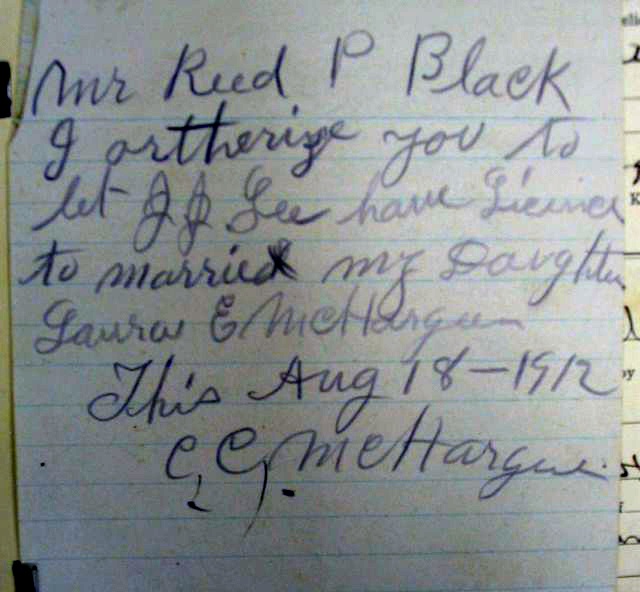 Mr Reed P Black
I ortherize you to
let JJ Lee have Licince
to married my Daughter
Laura E McHargue
This Aug 18-1912
C, C, McHargue